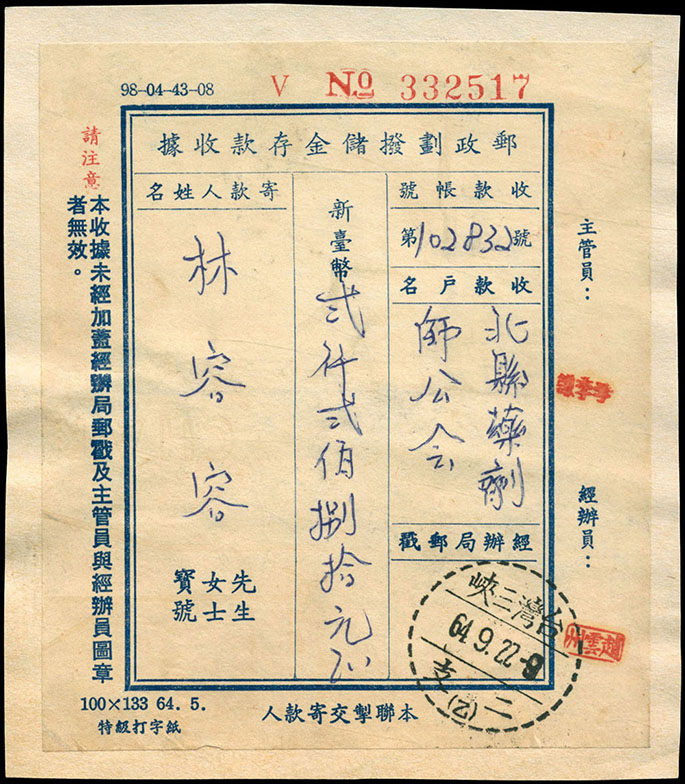 98-04-43-08
V No 332517
郵政劃撥儲金存款收據
收款帳號
第102832號
收款戶名
北縣藥劑
師公会
經辦局郵戳
新臺幣弍仟弍佰捌拾元正
寄款人姓名
林容容
先生
女士
寶號
主管員：
經辦員：
趙雲州
台灣三峽
64.9.22
二支
(乙)
請注意
本收據未經加蓋經辦局郵戳及主管員與經辦員圖章
者無效。
100×133 64. 5.
特級打字紙
本聯掣交寄款人